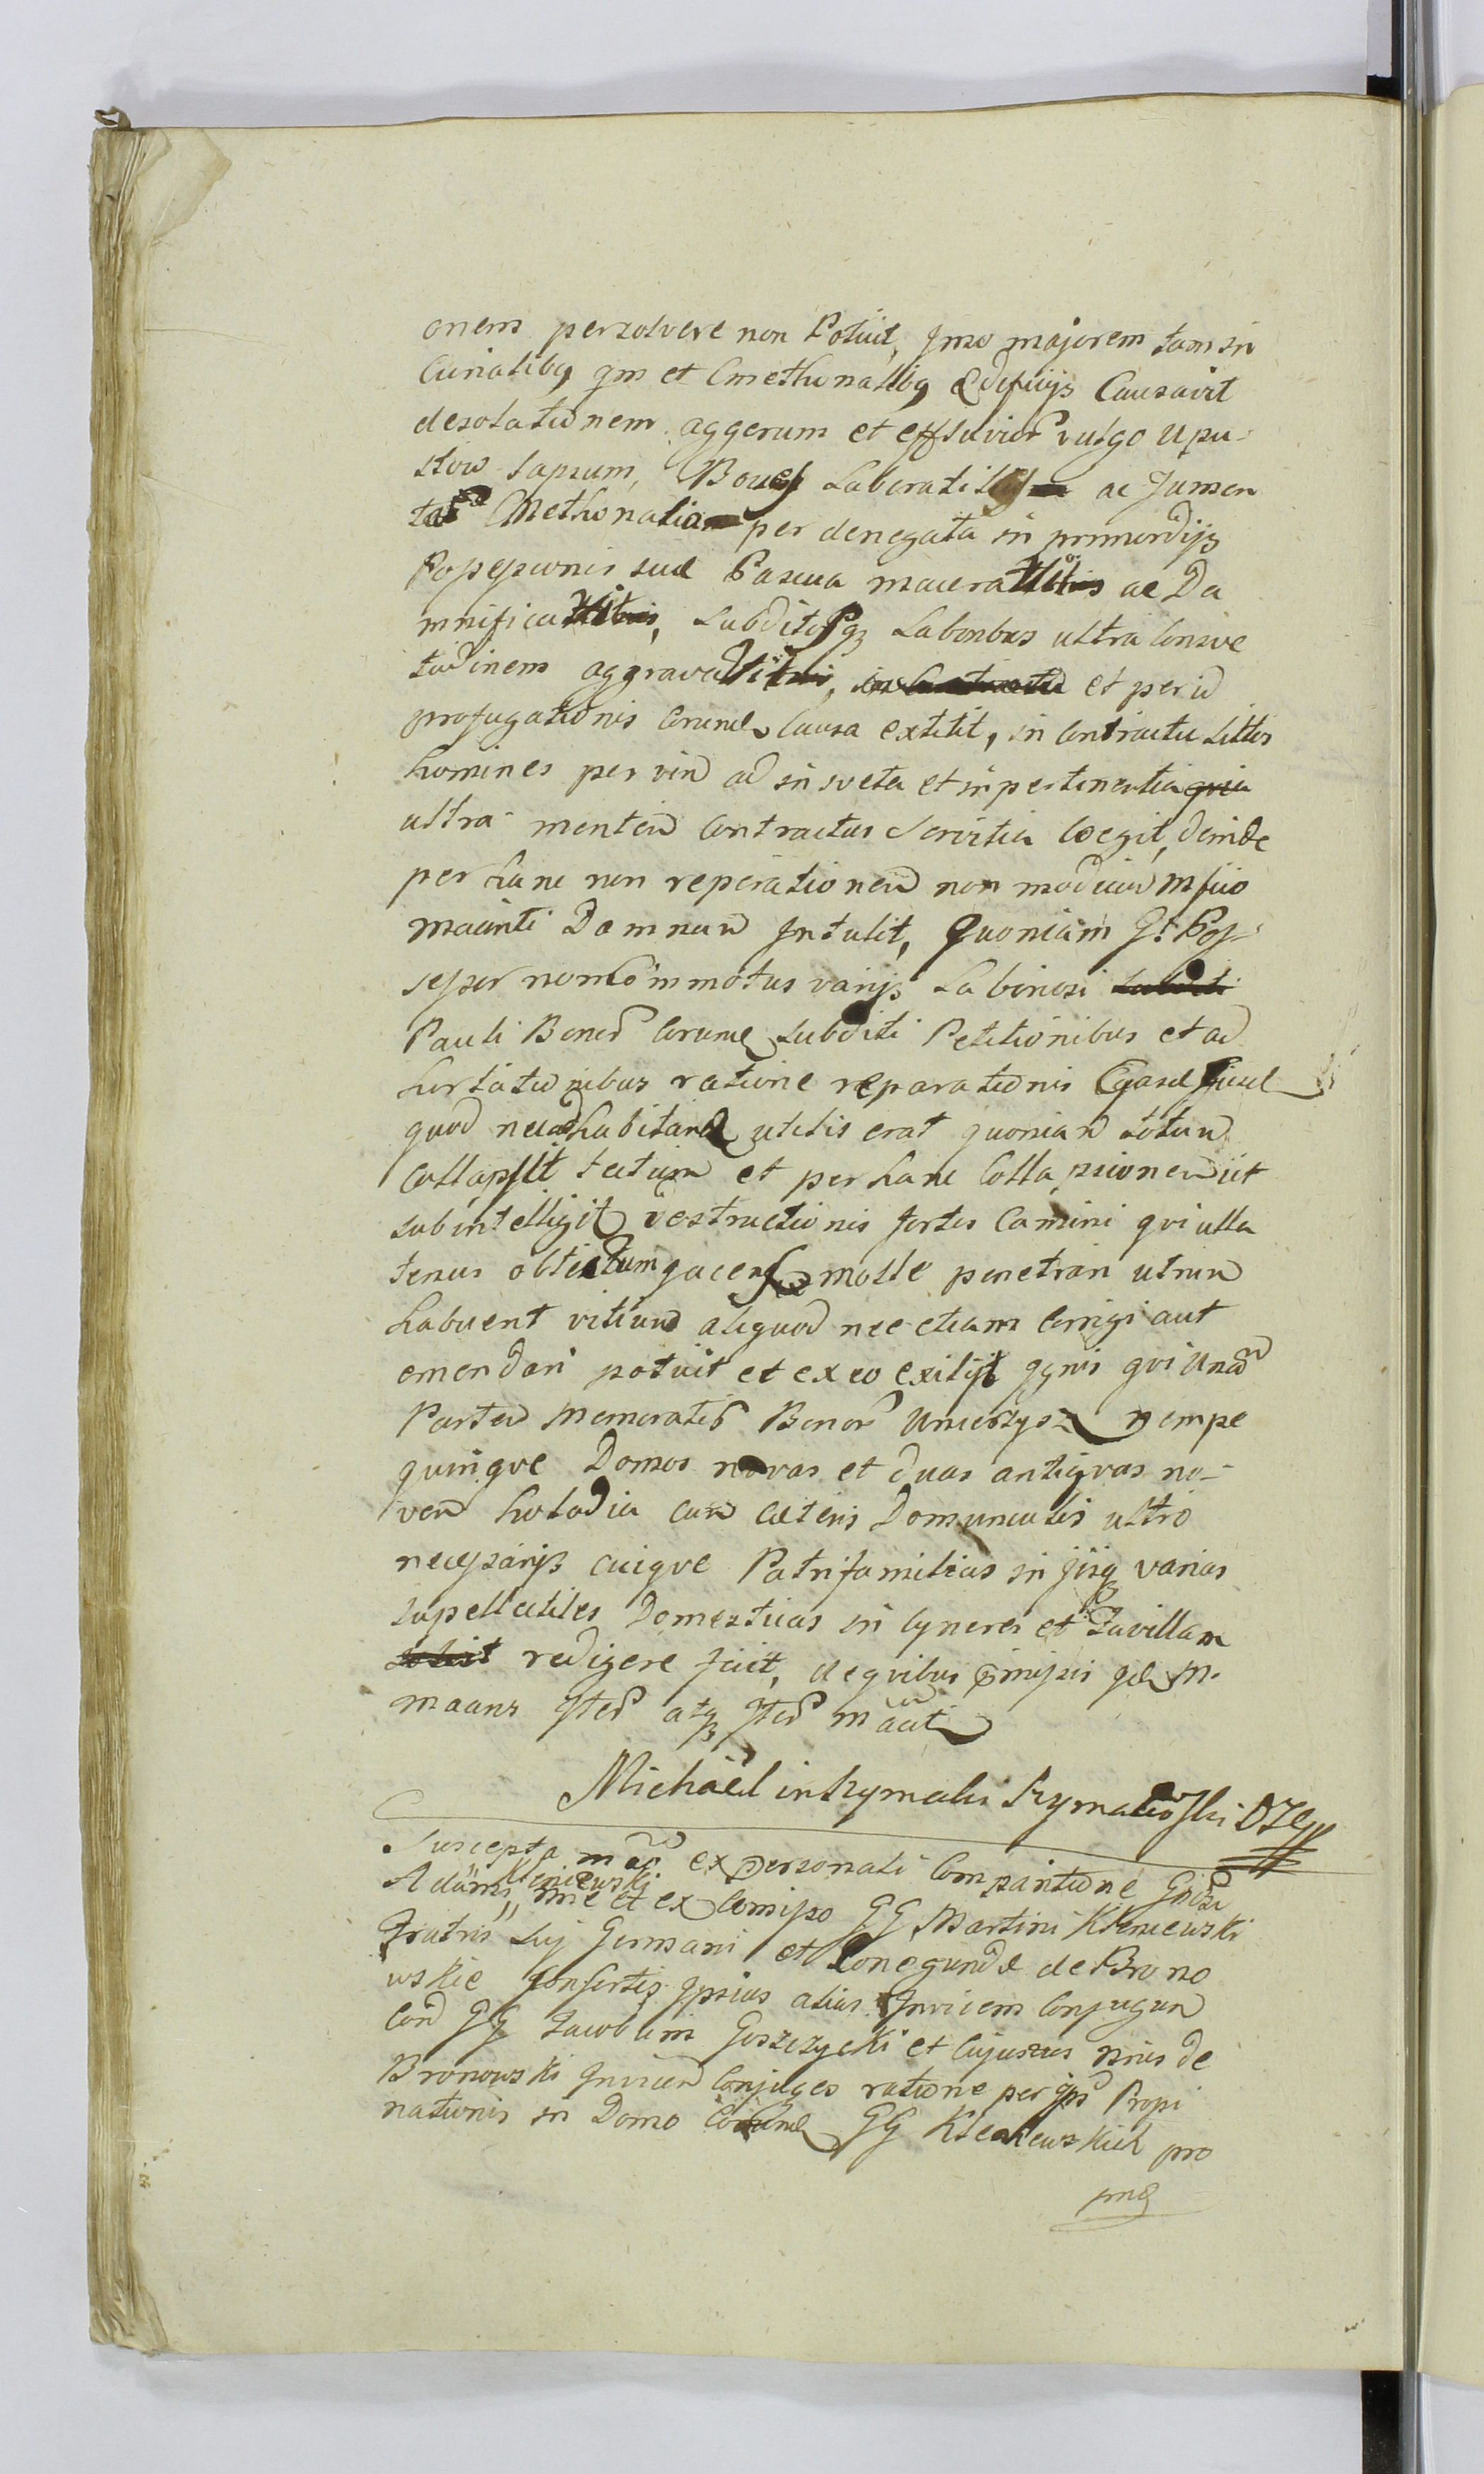 onem persolvere non Potuit, Imo majorem tam in
Curialibq qm et Cmethonalibq Ædificijs Causavit
desolationem aggerum et effluvior vulgo upu-
stow lapsum, Boves Laborati ac Jumen
ta Cmethonalia per denegata in primordijs
Possessionis suæ Pascua macera ac Da
mnifica, Subditosq Laboribus ultra Consve
tudinem aggrava, et per id
profugationis Corund Causa extitit, in Contractu Littos
homines per vim ad insveta et inpertinentia
ultra mentem Contractus Servitia Coegit, deinde
per hanc non reperationem non modicum
maanti Damnum Intulit, Quoniam Gs Pos-
sessor non Commotus varijs Labinosi
Pauli Bonor Corund subditi Petitionibus et ad
hortationibus ratione reparationis Casæ suæ
quod nec ad habitand utilis erat quoniam totum
Collapsit tectum et per hanc Collapsionem ut
subintelligit destructionis fortis Camini qvi ulla
tenus obtectum jacens molle penetrari utrum
habuent vitium aliquod nec etiam Corrigi aut
emendari potuit et ex eo exilijt ignis qvi Unam
Partem Memorator Bonor nempe
quinqve Domos novas et duas antiqvas no-
vem holodia cum cæteris Domunculis ultro
necessarijs cuiqve Patrifamilias in ijsq varias
supellectiles Domesticas in Cyneres et Favillam
redigere fecit, de qvibus præmissis M.
maans Ited atq Ited maati
Michaël in Rymaki Rymakowski
Suscepta ex personali Comparitione
Adami Kleniewski, me et ex Comisso GG Martini Kleniewski
Fratris Sui Germani et Conegundæ de Brono
wskie Consortis Ipsius alias Invicem Conjugum
Con GG Jacobum Goszczycki et Cujuszus de
Bronowski Invicem Conjuges ratione per Propi
nationis in Domo Corund GG Kleniewskich pro